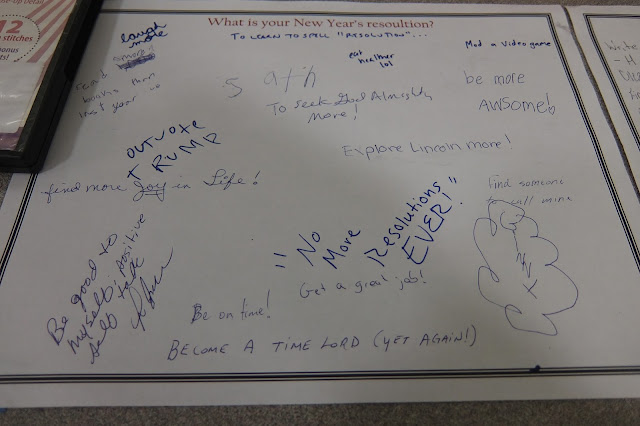 12
stitches
What is your New Year's resoultion?
TO LEARN TO SPELL "RESOLUTION"...
laugh
more
eat
healthier
lot
Mod a video game
be more
AWSome!
read
more
books than
last year
To seek God Almighty
more!
Explore Lincoln more!
outvote
TRUMP
find more joy in Life!
Find someone
to call mine
"No
More
Resolutions
EVER!"
Get a great job!
Be good to
myself: positive
self talk
Be on time!
BECOME A TIME LORD (YET AGAIN!)